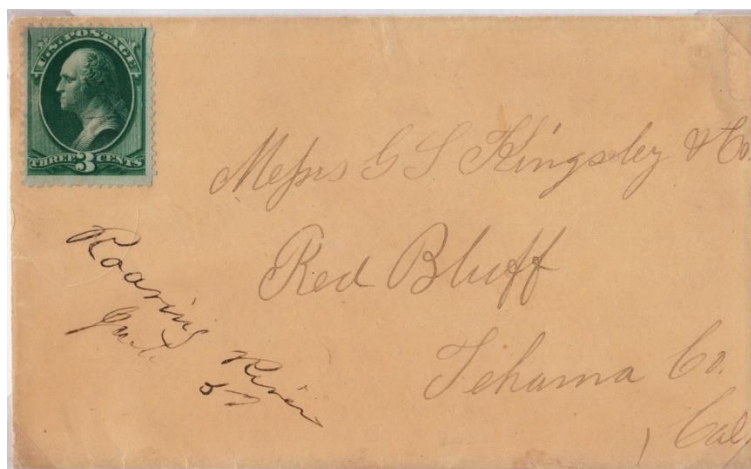 U.S. POSTAGE
THREE 3 CENTS
Messrs G S Kingsley & Co
Red Bluff
Tehama Co.
Cal,
Roaring River